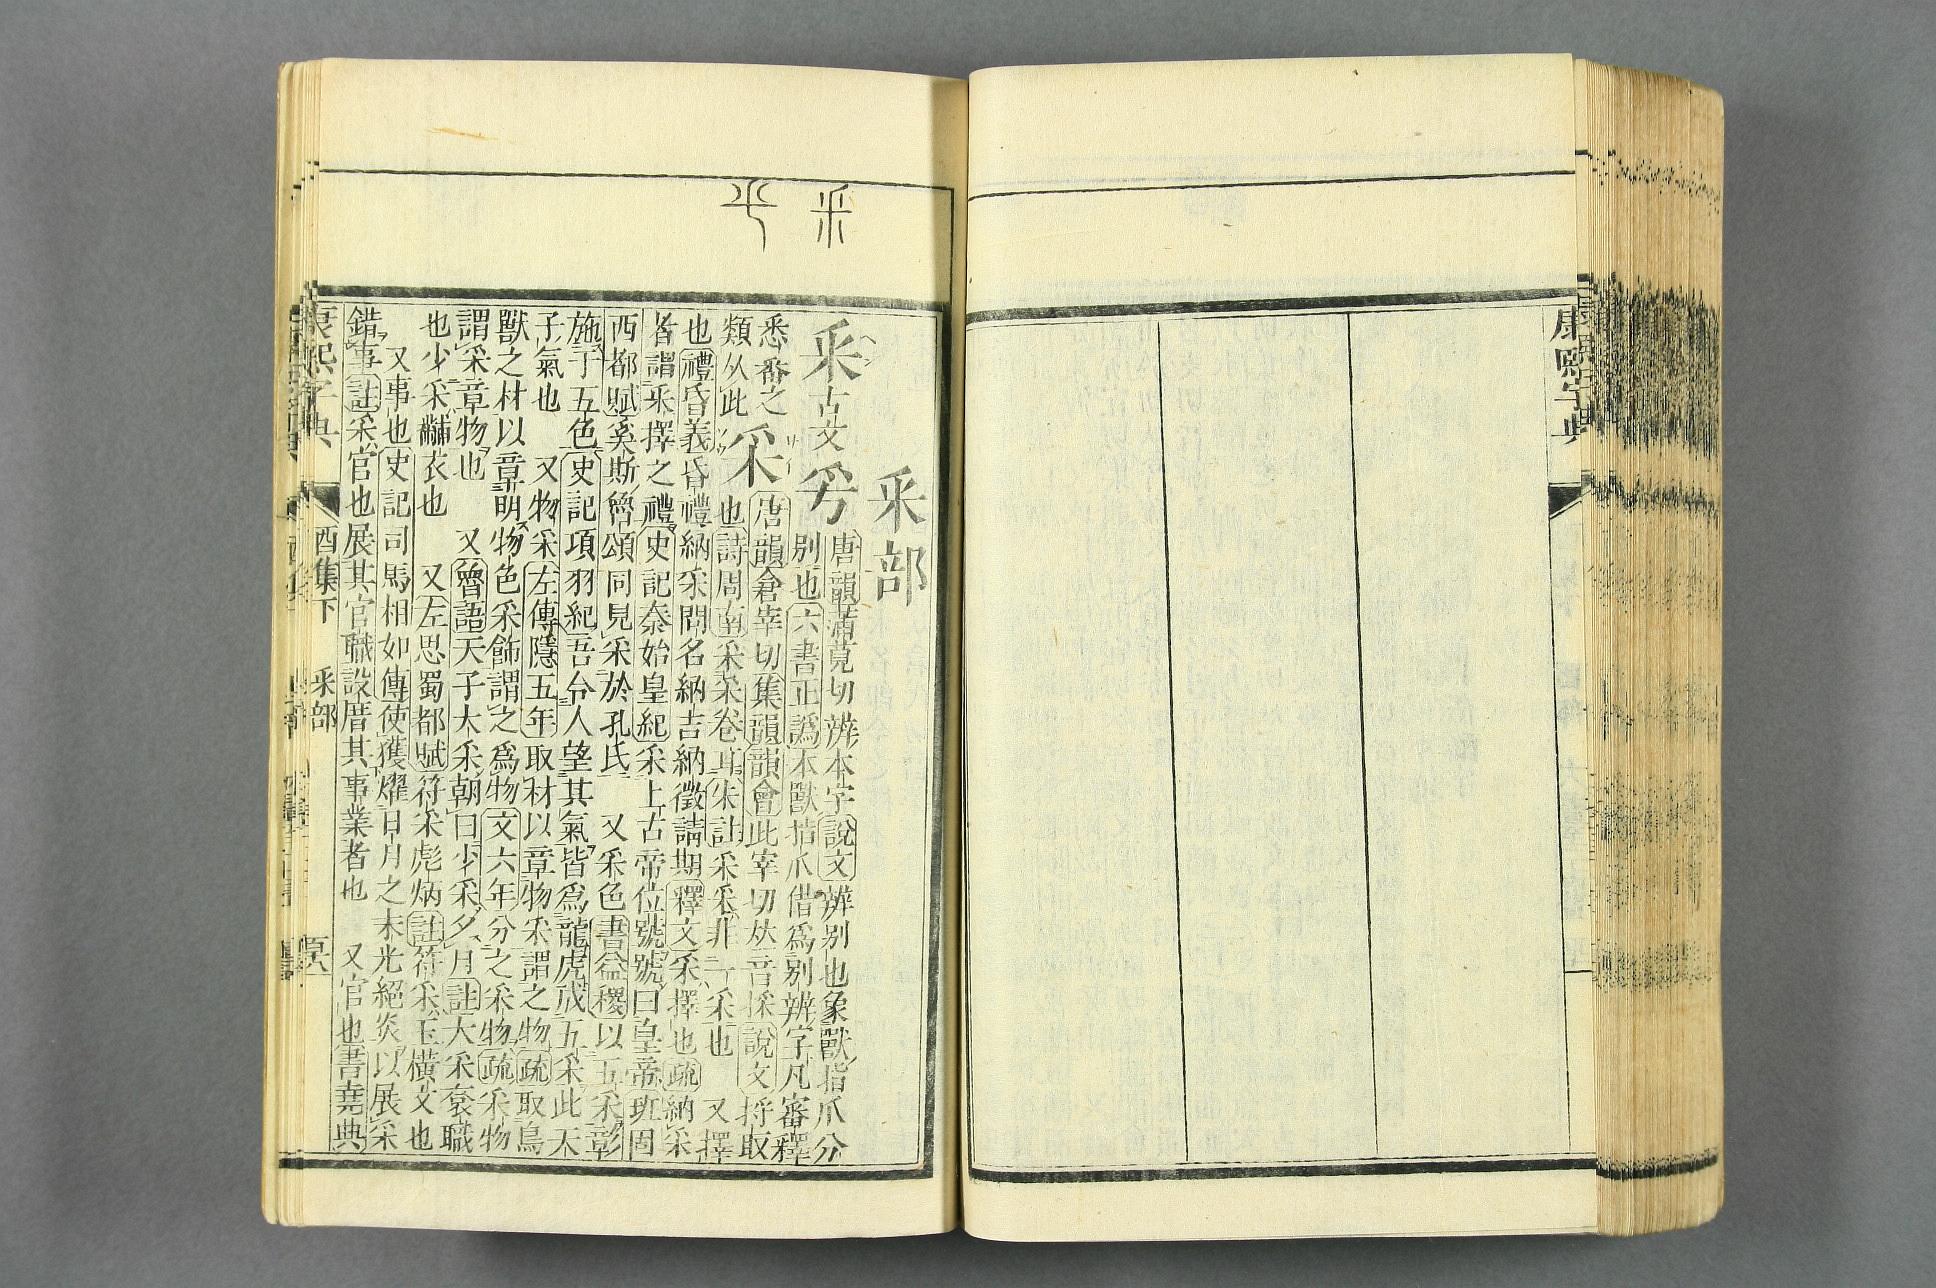 康熙字典
釆
釆部
釆古文𠂥唐韻蒲莧切辨本字說文辨别也象獸指爪分
别也六書正譌本獸指爪借爲别辨字凡審釋
悉番之類从此
采唐韻倉宰切集韻韻會此宰切𠀤音採說文捋取
也詩周南采采卷耳朱註采采非一采也 又擇
也禮昏義昏禮納采問名納吉納徵請期釋文采擇也疏納采
者謂采擇之禮史記秦始皇紀采上古帝位號號曰皇帝班固
西都賦奚斯魯頌同見采於孔氏 又采色書益稷以五采彰
施于五色史記項羽紀吾令人望其氣皆爲龍虎成五采此天
子氣也 又物采左傳隱五年取材以章物采謂之物疏取鳥
獸之材以章明物色采飾謂之爲物文六年分之采物疏采物
謂采章物也 又魯語天子大采朝日少采夕月註大采袞職
也少采黼衣也 又左思蜀都賦符采彪炳註符采玉橫文也
又事也史記司馬相如傳使獲燿日月之末光絕炎以展采
錯事註采官也展其官職設厝其事業者也 又官也書堯典
康熙字典
酉集下
釆部